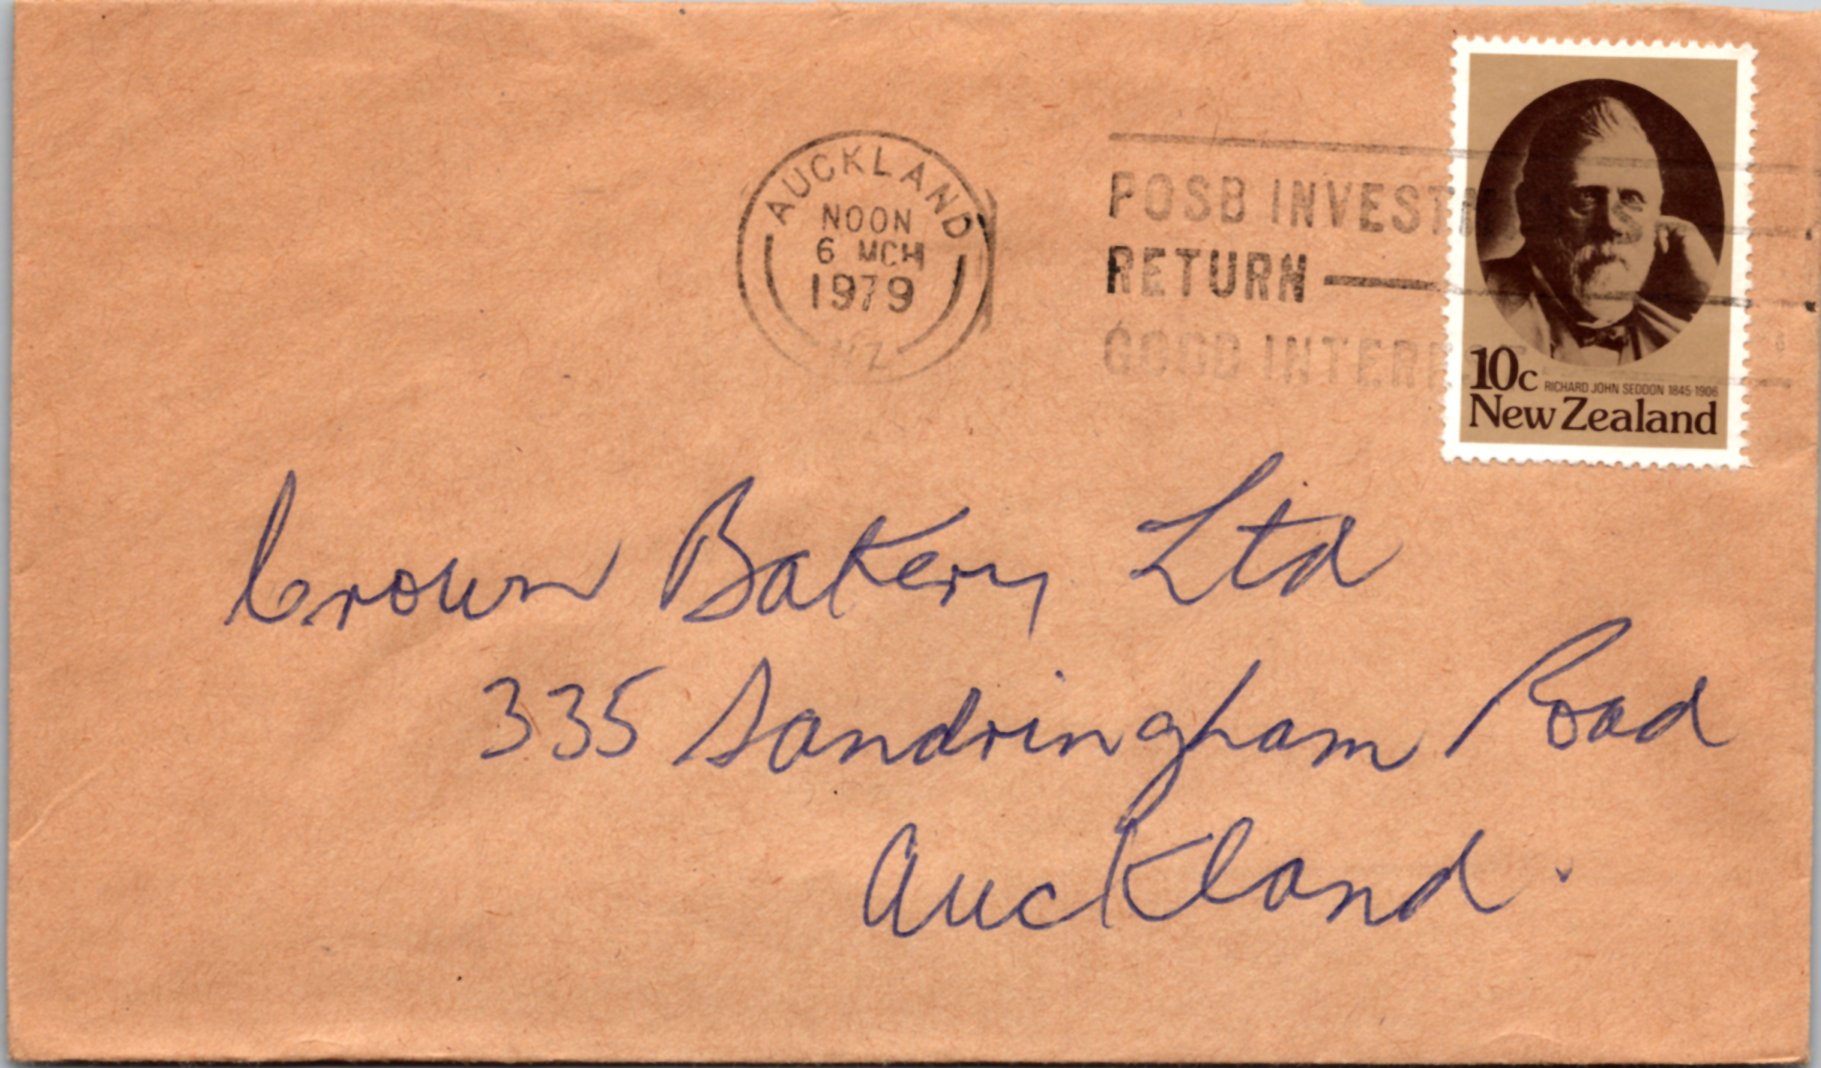 AUCKLAND
NOON
6 MCH
1979
NZ
POSB INVESTMENTS
RETURN
GOOD INTEREST
10c RICHARD JOHN SEDDON 1845-1906
New Zealand
Crown Bakery Ltd
335 Sandringham Road
Auckland.